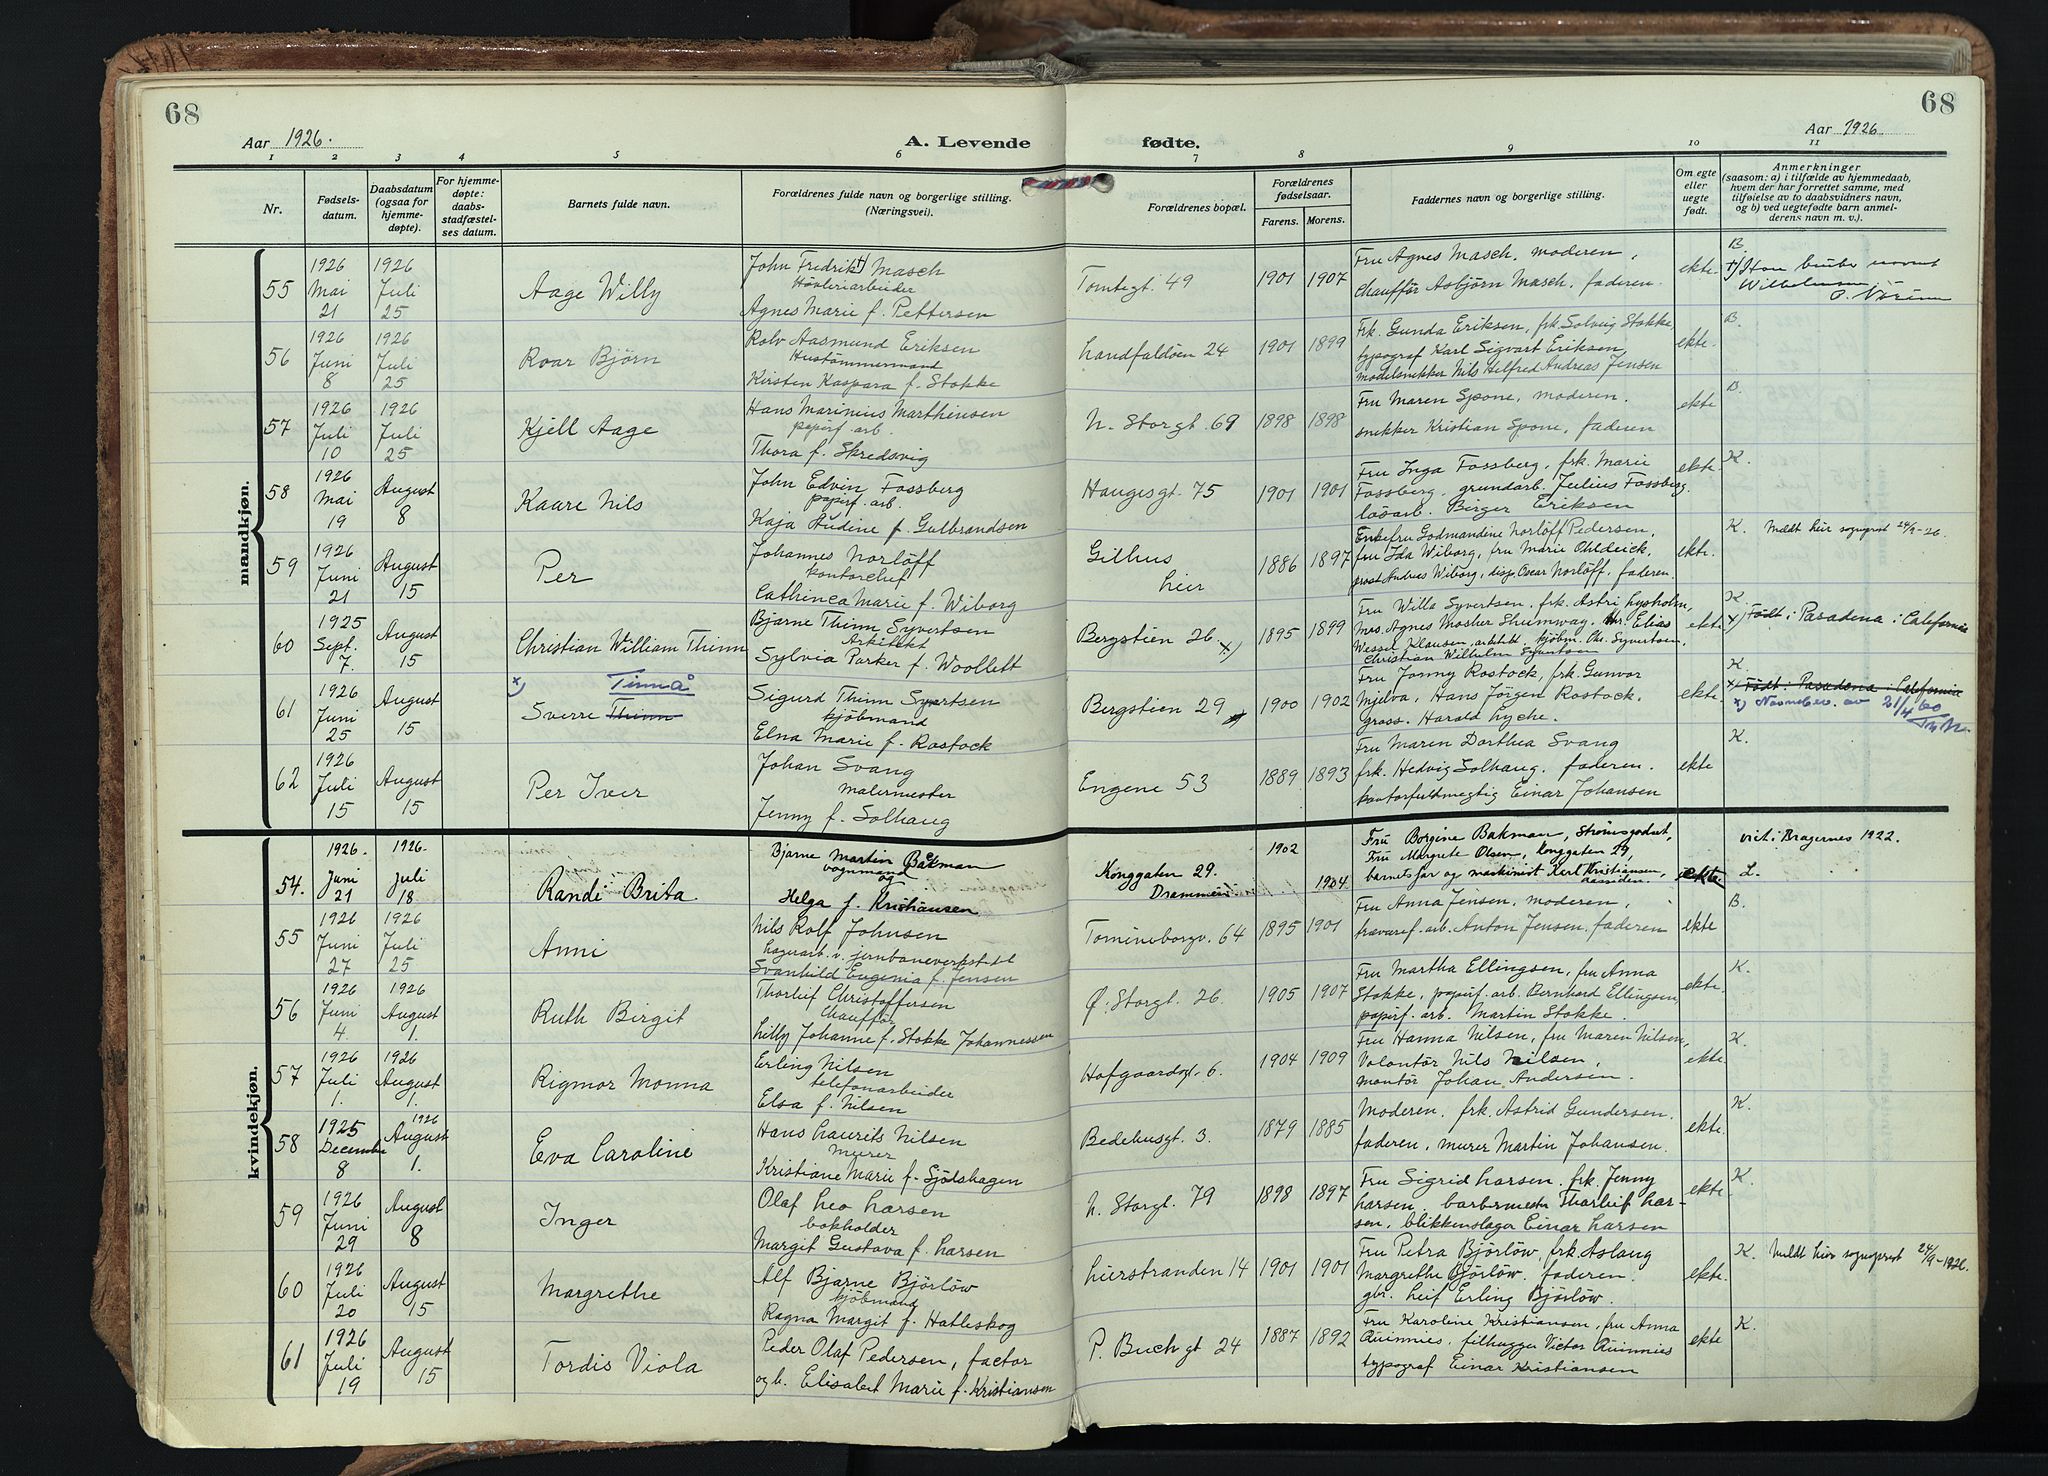 68
68
Aar 1926.
A. Levende
fødte.
Aar 1926.
1 2 3 4 5 6 7 8 9 10 11
Nr.
Fødsels-
datum.
Daabsdatum
(ogsaa for
hjemme-
døpte).
For hjemme-
døpte:
daabs-
stadfæstel-
ses datum.
Barnets fulde navn.
Forældrenes fulde navn og borgerlige stilling.
(Næringsvei).
Forældrenes bopæl.
Forældrenes
fødselsaar.
Farens. Morens.
Faddernes navn og borgerlige stilling.
Om egte
eller
uegte
født.
Anmerkninger
(saasom: a) i tilfælde av hjemmedaab,
hvem der har forrettet samme, med
tilføielse av to daabsvidners navn,
og b) ved uegtefødte barn anmel-
derens navn m. v.).
mandkjøn.
55
1926
Mai
21
1926
Juli
25
Aage Willy
John Fredrik +) Masch
Høvleriarbeider
Agnes Marie f. Pettersen
Tomtegt. 49
1901 1907
Fru Agnes Masch, moderen,
Chauffør Asbjørn Masch, faderen.
ekte.
B.
Wilhelmsen
56
1926
Juni
8
1926
Juli
25
Roar Bjørn
Rolv Aasmund Eriksen
Hustømmermand
Kirsten Kaspara f. Stokke
Landfaldøen 24
1901 1899
Frk. Gunda Eriksen, frk. Solveig Stokke,
typograf Karl Sigvart Eriksen,
modelsnekker Nils Hilfred Andreas Jensen
ekte.
B.
57
1926
Juli
10
1926
Juli
25
Kjell Aage
Hans Marinius Marthinsen
papirf. arb.
Thora f. Skredsvig
N. Storgt. 69
1898 1898
Fru Maren Spone, moderen.
snekker Kristian Spone, faderen
ekte
B.
58
1926
Mai
19
August
8
Kaare Nils
John Edvin Fossberg
papirf. arb.
Kaja Audine f. Gulbrandsen
Haugesgt. 75
1901 1901
Fru Inga Fossberg, frk. Marie
Fossberg, grundarb. Julius Fossberg,
løsarb. Berger Eriksen
ekte.
K.
59
1926
Juni
21
August
15
Per
Johannes Norløff
kontorchef
Cathinca Marie f. Wiborg
Gilhus
Lier
1886 1897
Enkefru Godmandine Norløff Pedersen,
fru Ida Wiborg, fru Marie Ohldieck,
prost Andreas Wiborg, disp. Oscar Norløff. faderen.
ekte.
K. Meldt hier sogneprest 24/9-26.
60
1925
Sept.
7.
August
15
Christian William Thinn
Bjarne Thinn Syvertsen
Arkitekt
Sylvia Parker f. Woollett
Bergstien 26 x)
1895 1899
Fru Willa Syvertsen, frk. Astri Lysholm,
Mrs. Agnes Mosher Shumway, Mr. Elias
Wessel Klausen, arkitekt, kjøbm. Chr. Syvertsen,
Christian Wilhelm Syvertsen
ekte
K.
x) Født i Pasadena i California
61
1926
Juni
25
August
15
x) Tinnå
Sverre Thinn
Sigurd Thinn Syvertsen
kjøbmand
Elna Marie f. Rostock
Bergstien 29
1900 1902
Fru Jonny Rostock, frk. Gunvor
Mjelva, Hans Jørgen Rostock,
gross. Harald Lyche.
ekte
K.
x) Født i Pasadena i California
x) Navnebev. av 21/4 60
62
1926
Juli
15
August
15
Per Iver
Johan Svang
malermester
Jenny f. Solhaug
Engene 53
1889 1893
Fru Maren Dorthea Svang
frk. Hedvig Solhaug. faderen.
kontorfuldmegtig Einar Johansen
ekte
K.
kvindekjøn.
54.
1926.
Juni
21
1926.
Juli
18
Randi Brita
Bjarne Martin Bakman
vognmand og
Helga f. Kristiansen
Konggaten 29.
Drammen
1902
1904
Fru Borgine Bakman, Strømsgodset,
Fru Margrete Olsen, Konggaten 29,
barnets far og maskinist Karl Kristiansen,
ekte.
viet i Bragernes 1922.
L.
55
1926
Juni
27
1926
Juli
25
Anni
Nils Rolf Johnsen
lagerarb. v. jernbaneverkst.
Svanhild Eugenia f. Jensen
Tomineborgv. 64
1895 1901
Fru Anna Jensen, moderen,
trævaref. arb. Anton Jensen, faderen
ekte
B.
56
1926
Juni
4
1926
August
1.
Ruth Birgit
Thorleif Christoffersen
Chauffør
Lilly Johanne f. Stokke Johannessen
Ø. Storgt. 26.
1905 1907
Fru Martha Ellingsen, fru Anna
Stokke, papirf. arb. Bernhard Ellingsen,
papirf. arb. Martin Stokke.
ekte.
K.
57
1926
Juli
1.
1926
August
1.
Rigmor Monna
Erling Nilsen
telefonarbeider
Elsa f. Nilsen
Hofgaardsg. 6.
1904 1909
Fru Hanna Nilsen, fru Maren Nilsen,
Volontør Nils Nilsen,
montør Johan Andersen.
ekte.
K.
58
1925
December
8
1926
August
1.
Eva Caroline
Hans Laurits Nilsen
murer
Kristiane Marie f. Sjölshagen
Bedehusgt. 3.
1879 1885
Moderen, frk. Astrid Gundersen.
faderen, murer Martin Johansen.
ekte.
K.
59
1926
Juni
29
August
8
Inger
Olaf Leo Larsen
bokholder
Margit Gustava f. Larsen
N. Storgt. 79
1898 1897
Fru Sigrid Larsen. frk. Jenny
Larsen, barbermester Thorleif Lar-
sen, blikkenslager Einar Larsen
ekte
K.
60
1926
Juli
20
August
15
Margrethe
Alf Bjarne Björlöw
kjöbmand
Ragna Margit f. Hatleskog
Lierstranden 14
1901 1901
Fru Petra Björlöw, frk. Aslaug
Margrethe Björlöw. faderen.
gbr. Leif Erling Björlöw.
ekte.
K. Meldt hier sogneprest 24/9-1926.
61
1926
Juli
19
August
15
Tordis Viola
Peder Olaf Pedersen, factor
og h. Elisabet Marie f. Kristiansen
P. Buch gt 24
1887 1892
Fru Karoline Kristiansen, fru Anna
Quinnies, filhugger Victor Quinnies
typograf Einar Kristiansen
ekte
K.